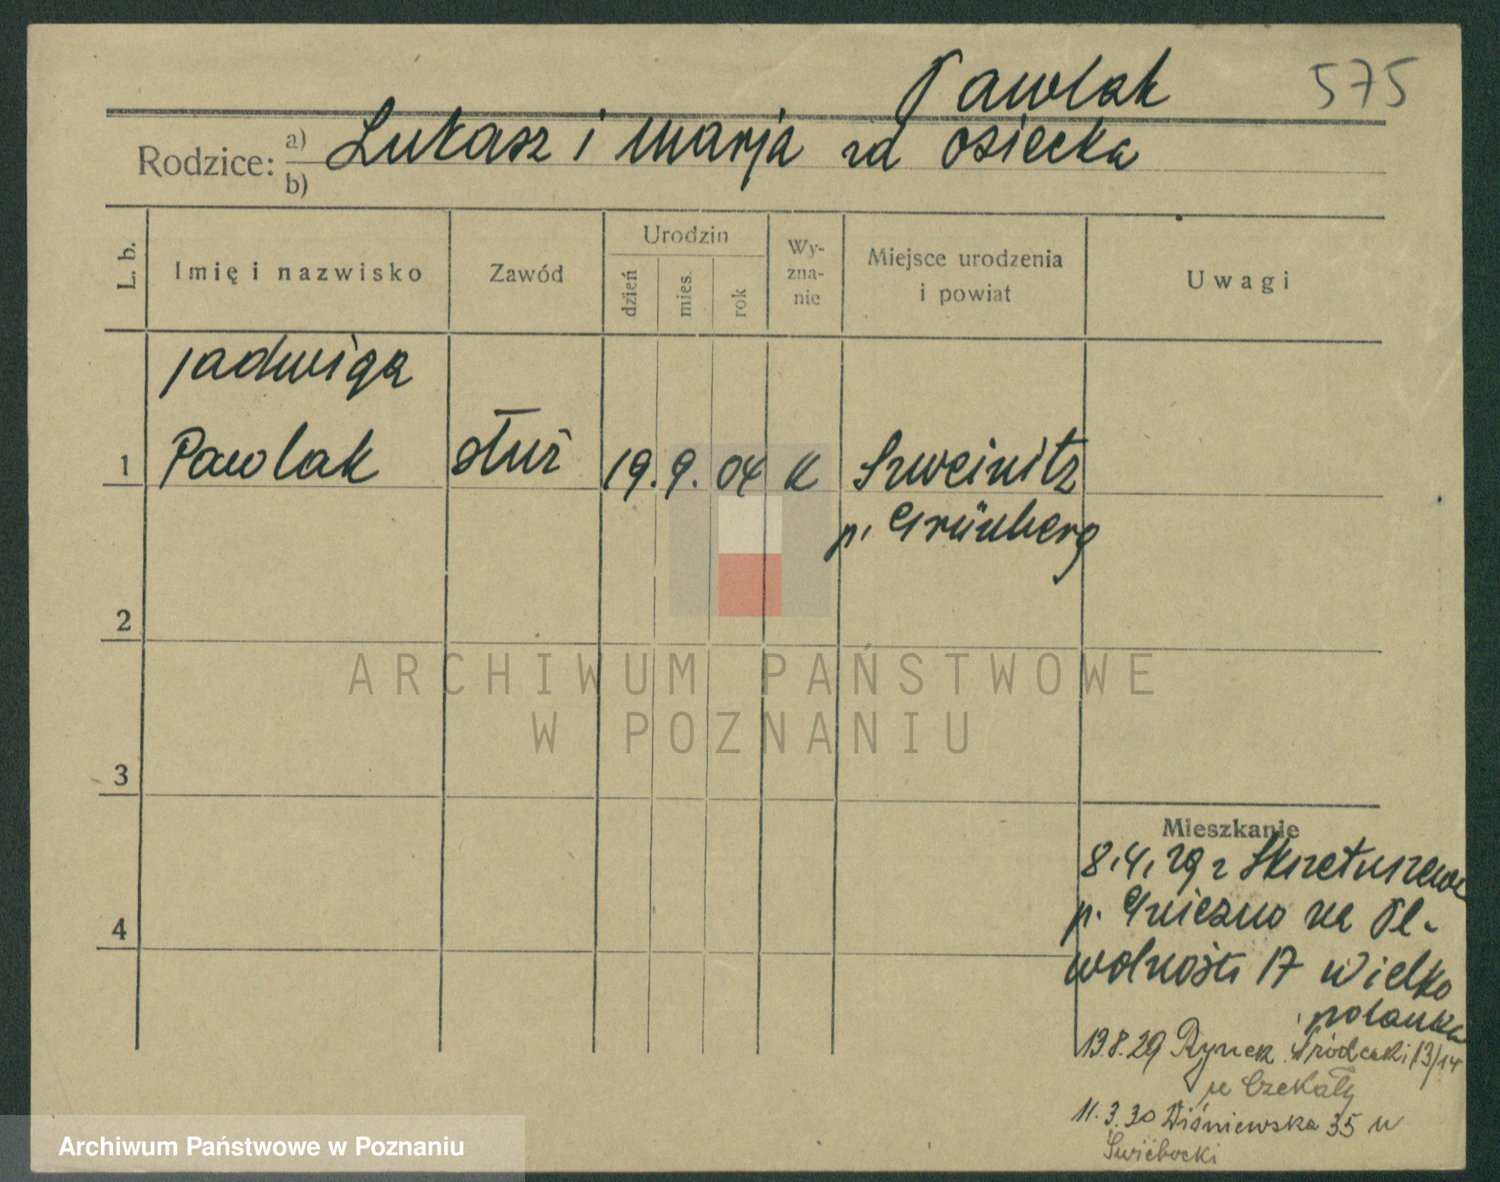 Pawlak 575
Rodzice: a) Łukasz i Marja zd Osiecka
b)
L. b. Imię i nazwisko Zawód Urodzin dzień mies. rok Wy-zna-nie Miejsce urodzenia i powiat Uwagi
Jadwiga
1 Pawlak służ 19. 9. 04 K Szweinitz
p. Grünberg
2
ARCHIWUM PAŃSTWOWE
W POZNANIU
3
Mieszkanie
8.4.29 z Skrzetuszewa
4 p. Gniezno na Pl-
wolności 17 Wielko
polanka
13.8.29 Rynek Śródecki 13/14
u Czekały
11.3.30 Wiśniewska 35 u
Archiwum Państwowe w Poznaniu